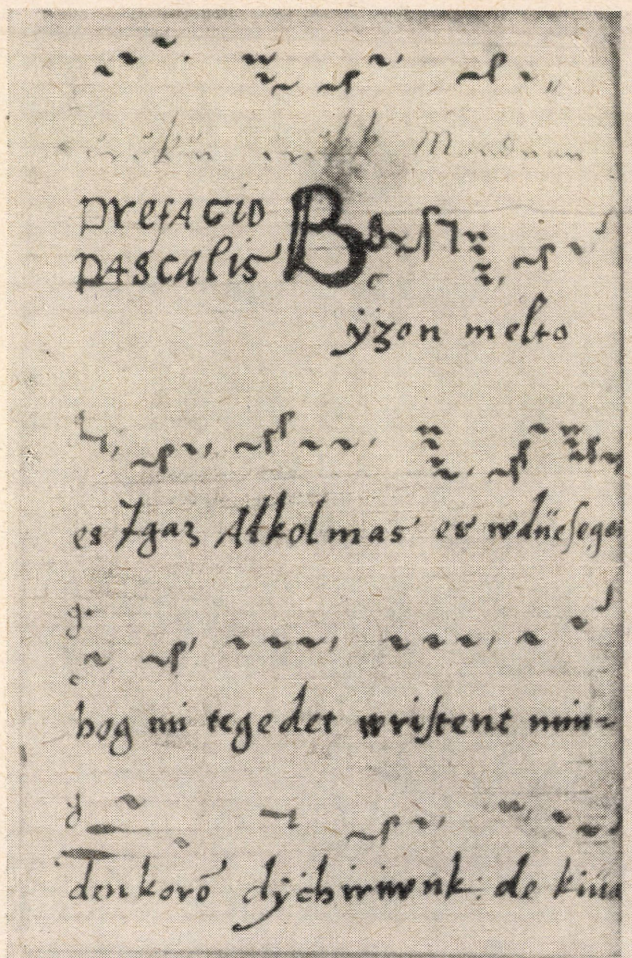 Monduan
prefacio B
pascalis
ÿzon melto
es Igaz Alkolmas es wdüeseges
hog mi tegedet wristent min-
den korō dÿchiriwnk: de kiua